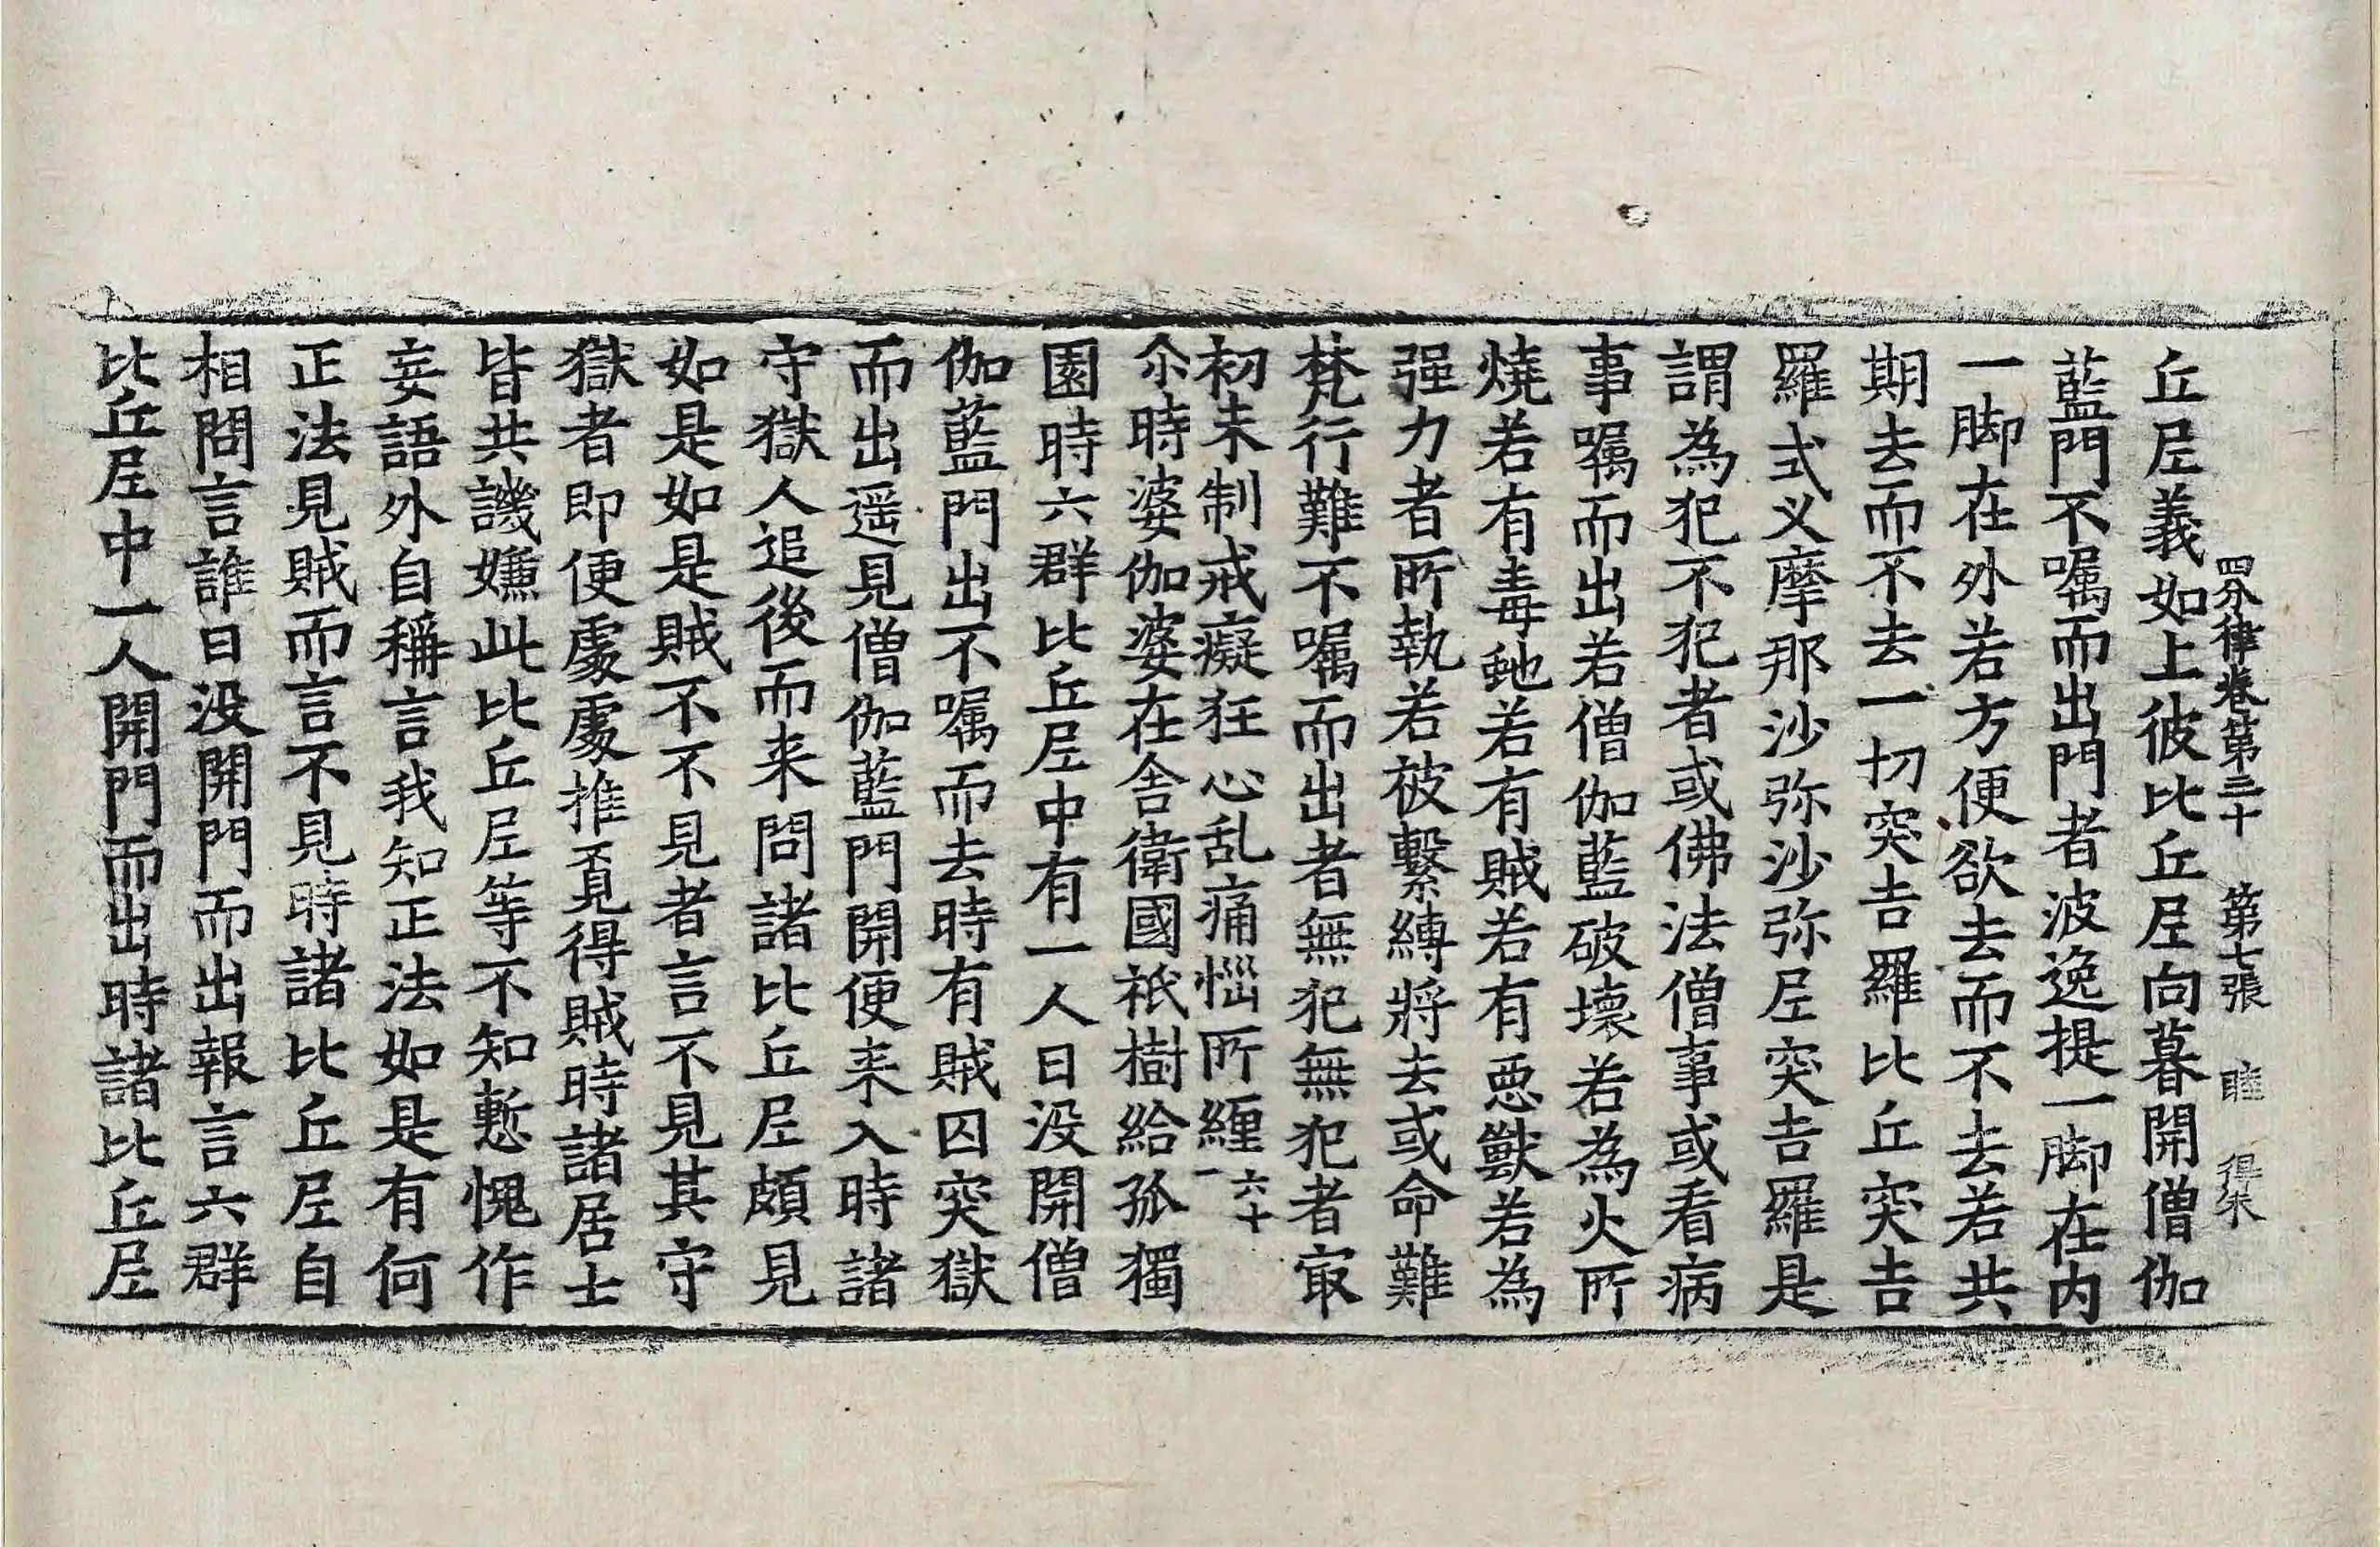 四分律卷第三十 第七張 睦 得朱
丘尼義如上彼比丘尼向暮開僧伽
藍門不囑而出門者波逸提一脚在内
一脚在外若方便欲去而不去若共
期去而不去一切突吉羅比丘突吉
羅式叉摩那沙弥沙弥尼突吉羅是
謂為犯不犯者或佛法僧事或看病
事囑而出若僧伽藍破壞若為火所
燒若有毒虵若有賊若有惡獸若為
强力者所執若被繫縛將去或命難
梵行難不囑而出者無犯無犯者㝡
初未制戒癡狂心乱痛惱所纏一六十
尒時婆伽婆在舍衛國祇樹給孤獨
園時六群比丘尼中有一人日没開僧
伽藍門出不囑而去時有賊囚突獄
而出遥見僧伽藍門開便来入時諸
守獄人追後而来問諸比丘尼頗見
如是如是賊不不見者言不見其守
獄者即便處處推覓得賊時諸居士
皆共譏嫌此比丘尼等不知慙愧作
妄語外自稱言我知正法如是有何
正法見賊而言不見時諸比丘尼自
相問言誰日没開門而出報言六群
比丘尼中一人開門而出時諸比丘尼